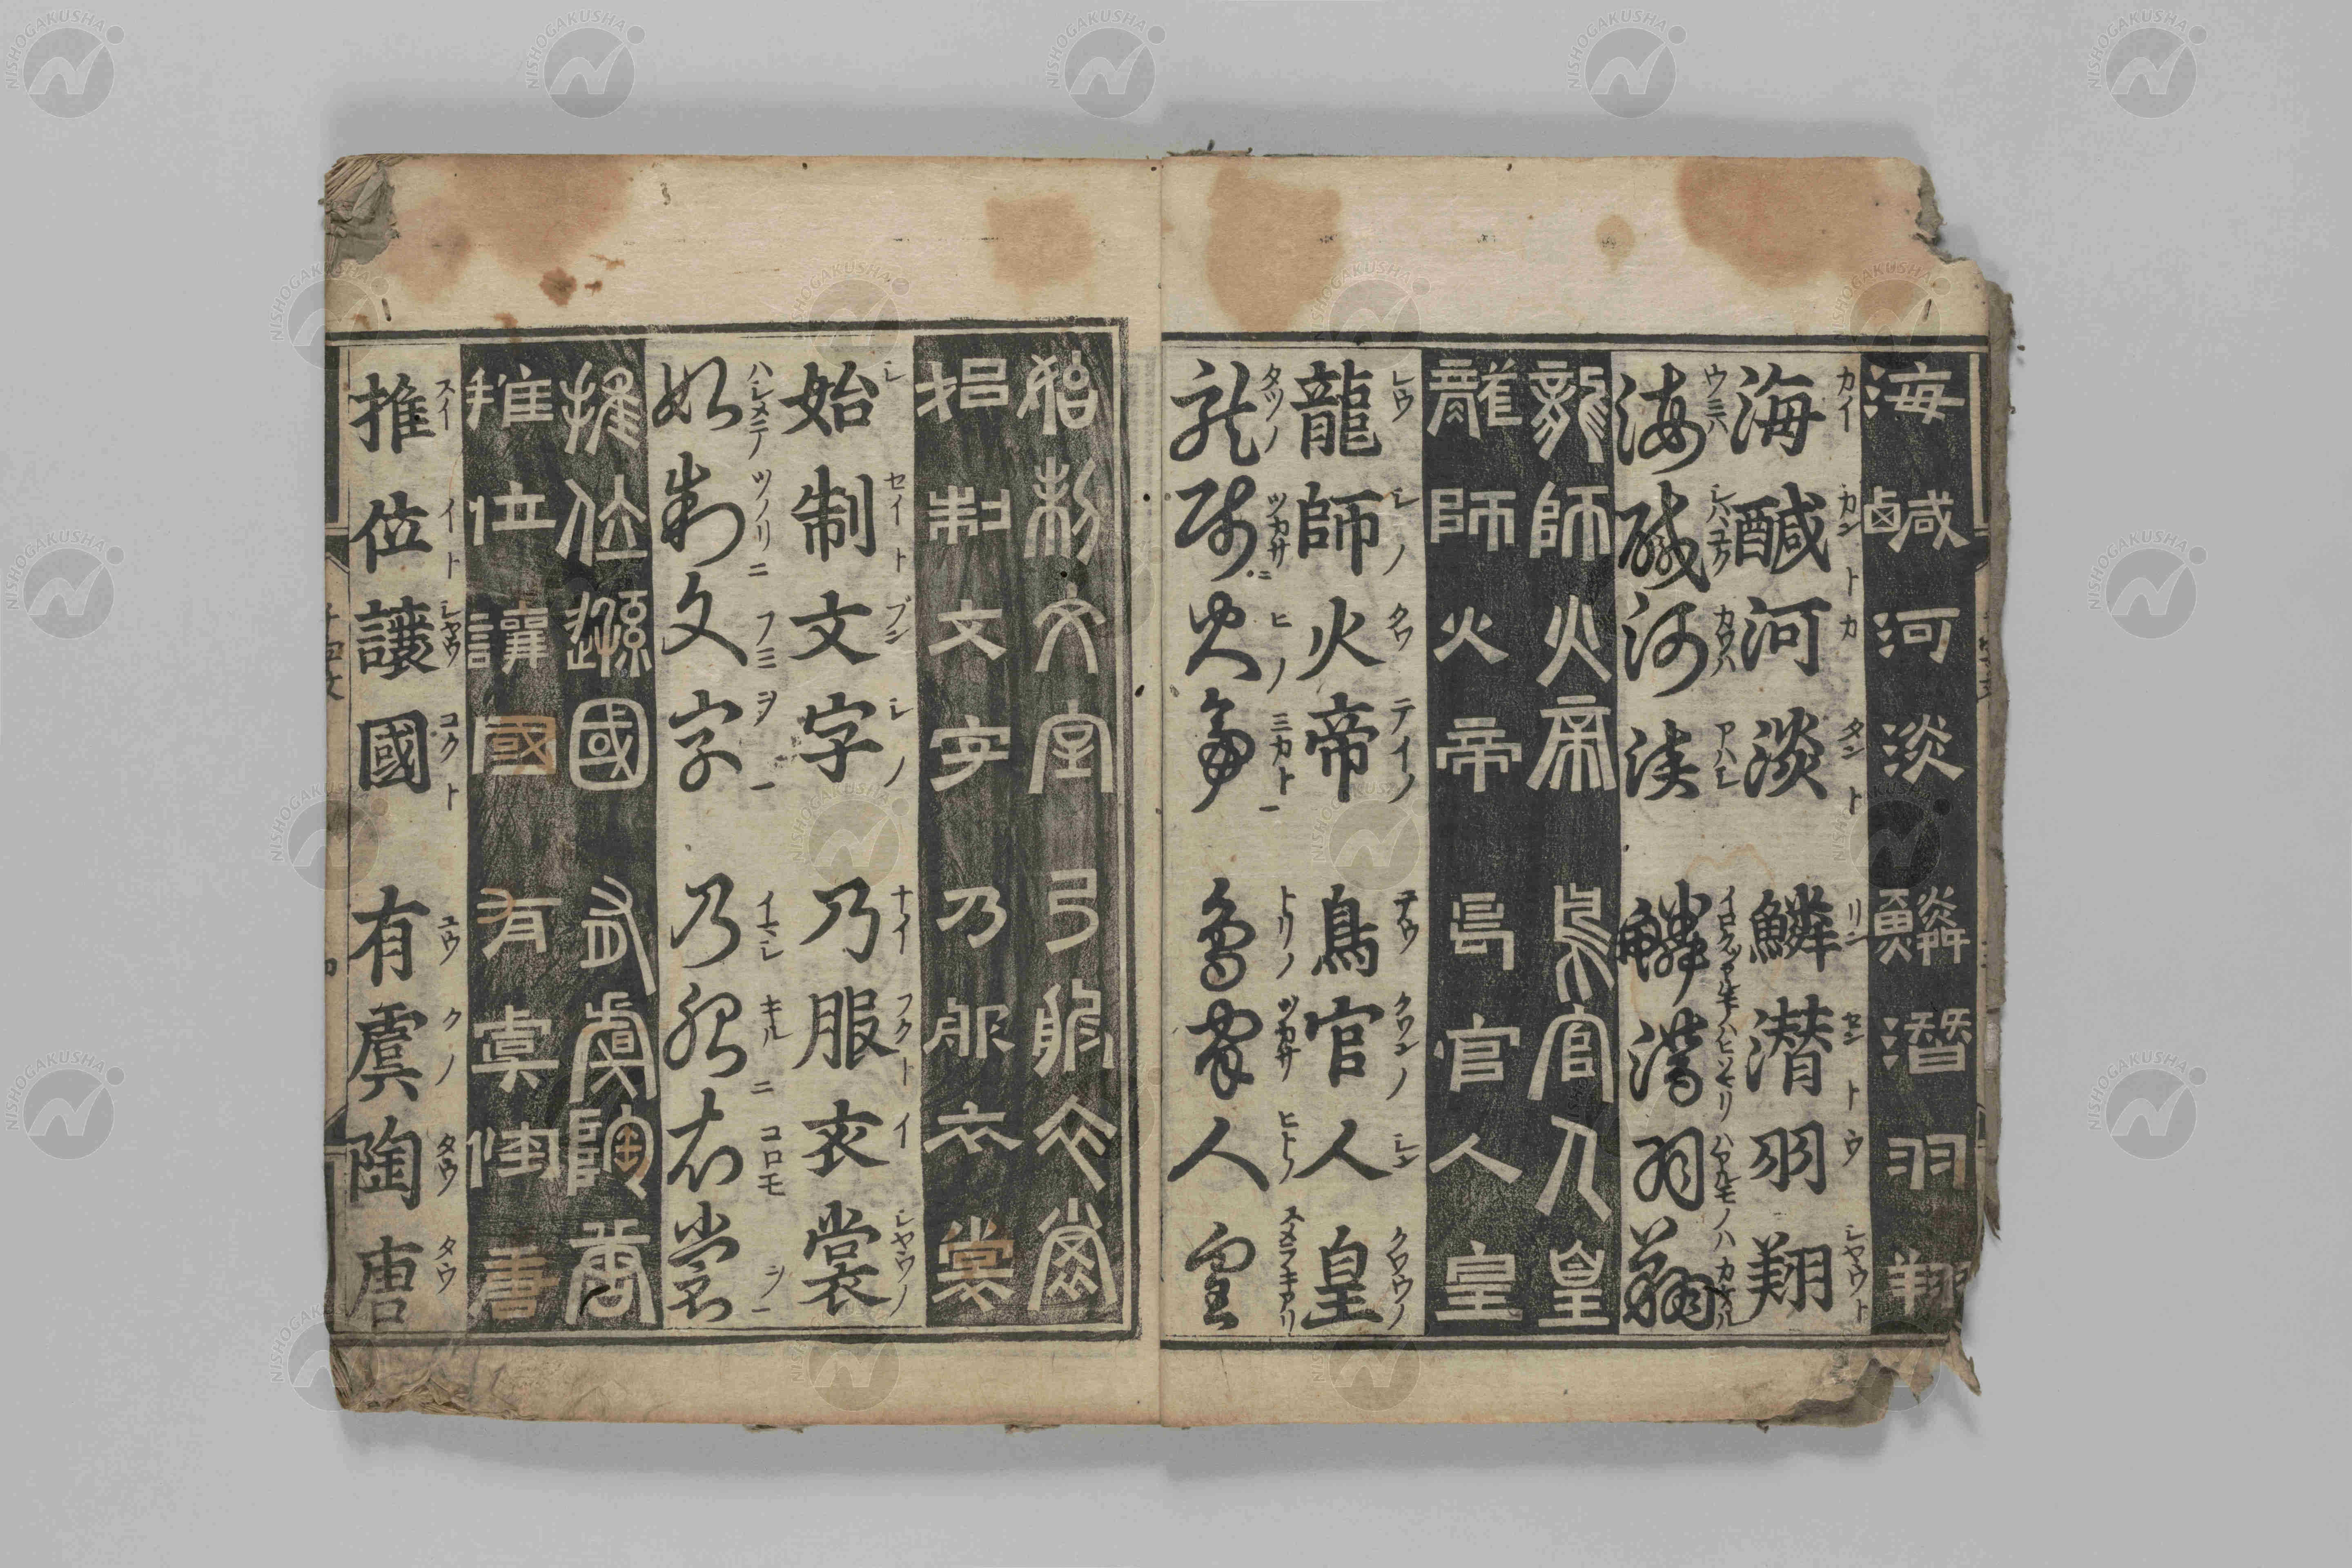 海鹹河淡 鱗潜羽翔
カイ カントカ タント リン セントウ シヤウト
海醎河淡 鱗潜羽翔
海醎河淡 鱗潜羽翔
龍師火帝 鳥官人皇
龍師火帝 鳥官人皇
レウ シノ クワ テイノ テウ クワンノ シン クワウノ
龍師火帝 鳥官人皇
タツノ ツカサニ ヒノ ミカト一 トリノ ツカサ ヒトノ スメラキアリ
龍師火帝 鳥官人皇
始制文字 乃服衣裳
始制文字 乃服衣裳
シ セイト ブン シノ ナイ フクト イ シヤウノ
始制文字 乃服衣裳
ハシメテ ツクリニ フミ ヲ一 イマシ キルニ コロモ ヲ一
始制文字 乃服衣裳
推位遜國 有虞陶唐
推位讓國 有虞陶唐
スイ イト シヤウ コクト ユウ クノ タウ タウ
推位讓國 有虞陶唐
NISHOGAKUSHA